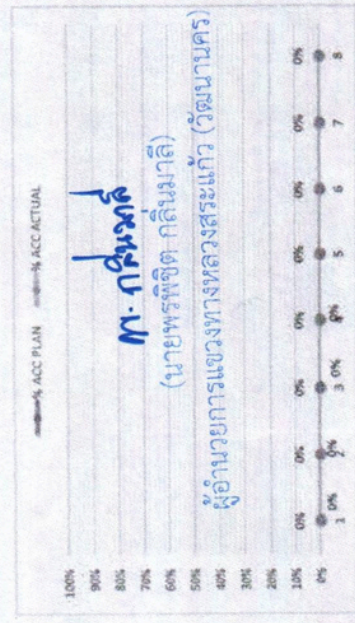 % ACC PLAN % ACC ACTUAL
100%
90%
80%
70%
60%
50%
40%
30%
20%
10%
0%
0% 0% 0% 0% 0% 0% 0% 0%
0% 0% 0% 0%
1 2 3 4 5 6 7 8
พ. กลิ่นมาลี
(นายพรพิชิต กลิ่นมาลี)
ผู้อำนวยการแขวงทางหลวงสระแก้ว (วัฒนานคร)